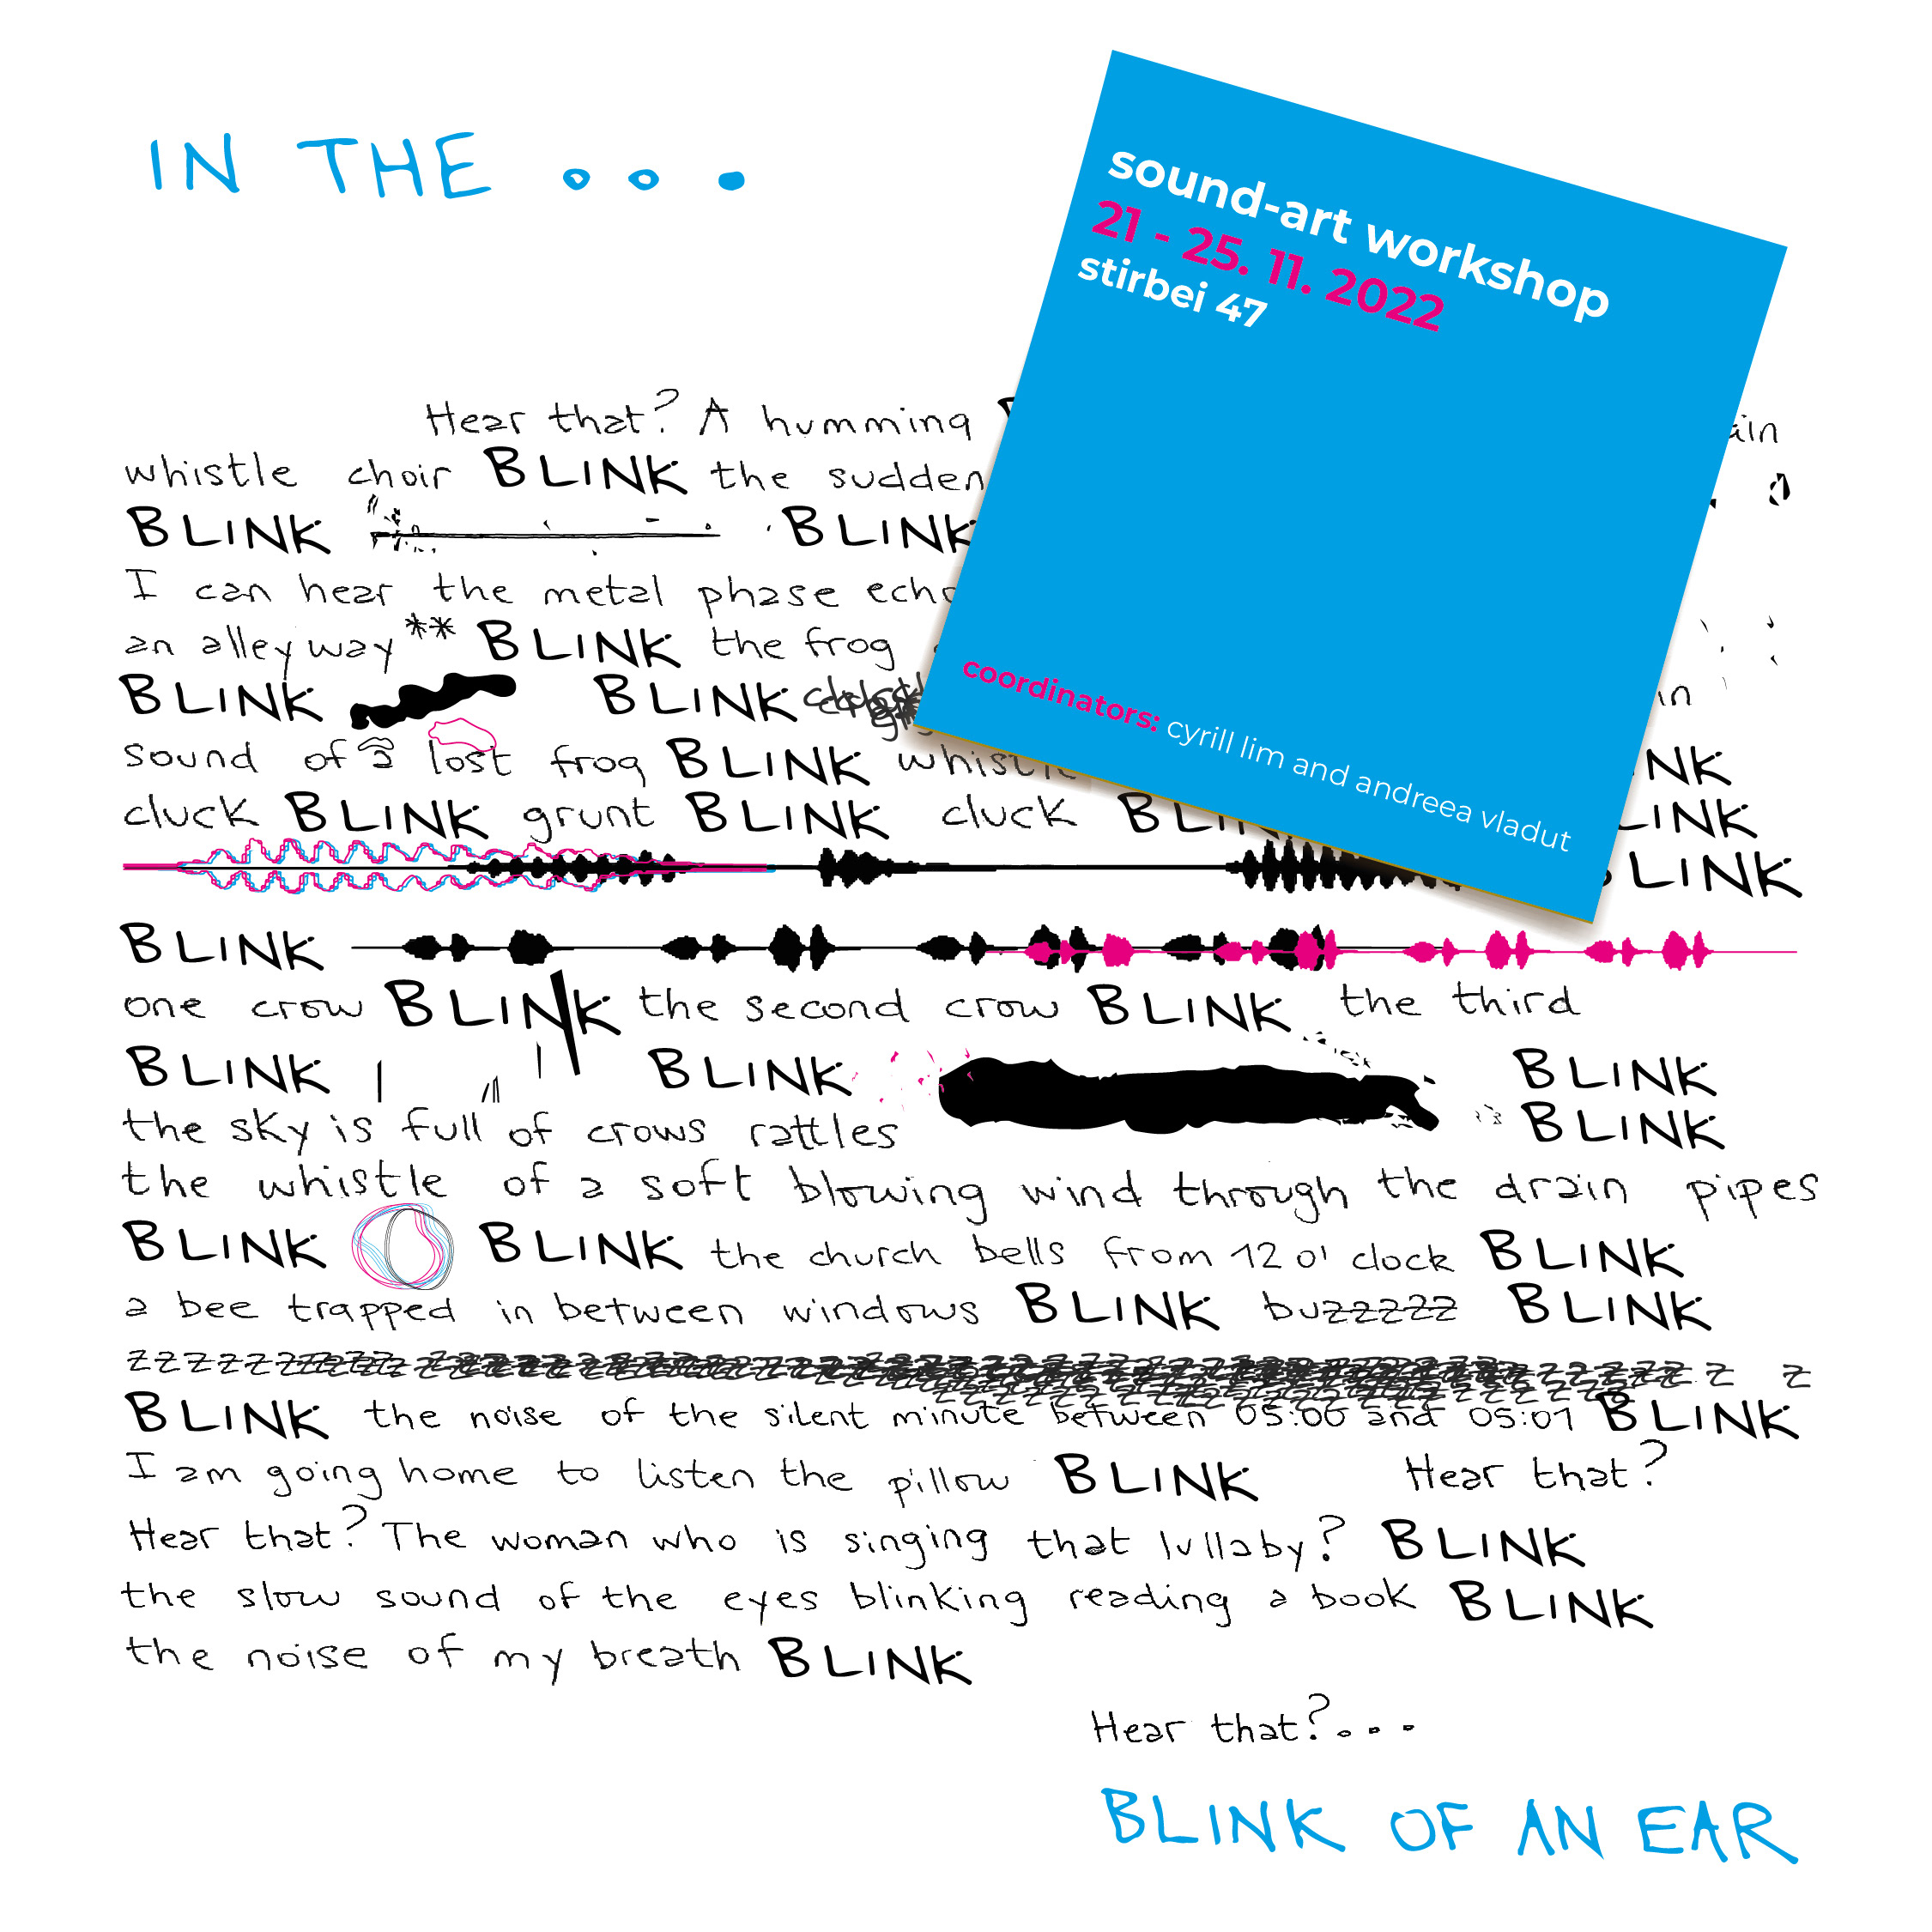 IN THE ...
sound-art workshop
21 - 25. 11. 2022
stirbei 47
coordinators: cyrill lim and andreea vladut
Hear that? A humming
whistle choir BLINK the sudden
BLINK BLINK
I can hear the metal phase
an alleyway** BLINK the frog
BLINK BLINK
sound of a lost frog BLINK whistle
cluck BLINK grunt BLINK cluck BLINK BLINK
BLINK
BLINK
one crow BLINK the second crow BLINK the third
BLINK BLINK BLINK
the sky is full of crows rattles BLINK
the whistle of a soft blowing wind through the drain pipes
BLINK BLINK the church bells from 12 o'clock BLINK
a bee trapped in between windows BLINK buzzzzz BLINK
BLINK the noise of the silent minute between 05:00 and 05:01 BLINK
I am going home to listen the pillow BLINK Hear that?
Hear that? The woman who is singing that lullaby? BLINK
the slow sound of the eyes blinking reading a book BLINK
the noise of my breath BLINK
Hear that?...
BLINK OF AN EAR